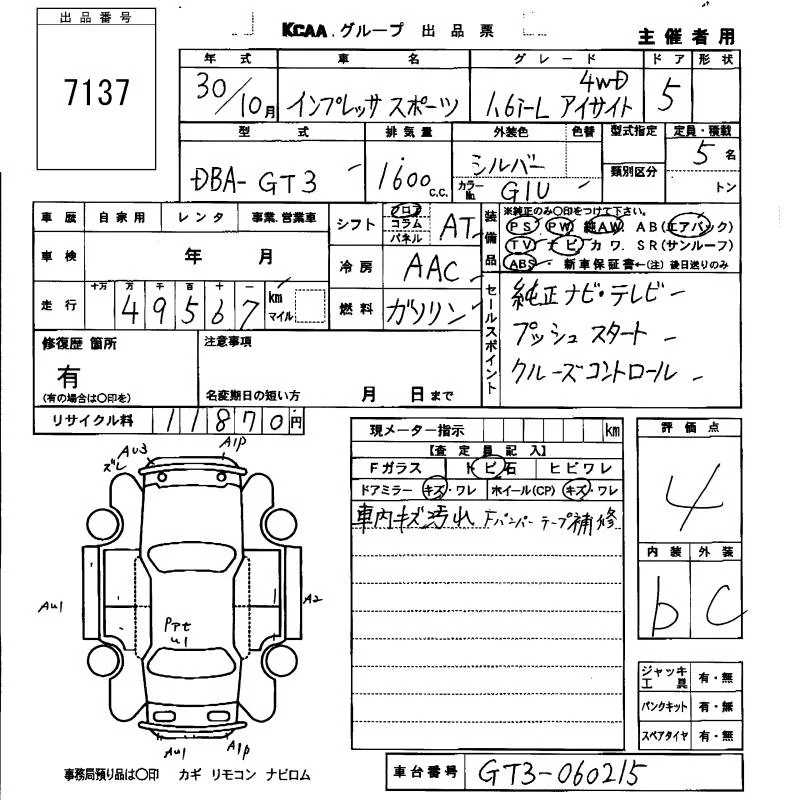 出品番号
7137
KCAA.グループ 出品票
主催者用
年式 車名 グレード ドア 形状
30/10月 インプレッサ スポーツ 1.6i-L アイサイト 4WD 5
型式 排気量 外装色 色替 型式指定 定員・積載
DBA-GT3 1600 C.C. シルバー 類別区分 5名
カラーNo. G1U トン
車歴 自家用 レンタ 事業.営業車
シフト フロア コラム パネル AT
装備品 ※純正のみ〇印をつけて下さい。
PS PW 純AW. AB(エアバック)
TV ナビ カワ. SR(サンルーフ)
ABS 新車保証書←(注)後日送りのみ
車検 年 月
冷房 AAC
走行 十万 万 千 百 十 一
49567 km マイル
燃料 ガソリン
セールスポイント
純正ナビ・テレビ
プッシュスタート
クルーズコントロール
修復歴 箇所
有
(有の場合は〇印を)
注意事項
名変期日の短い方 月 日まで
リサイクル料 11870円
現メーター指示 km
【査定員記入】
Fガラス トビ石 ヒビワレ
ドアミラー キズ・ワレ ホイール(CP) キズ・ワレ
車内キズ汚れ Fバンパーテープ補修
評価点
4
内装 外装
b C
ズレ AU3 A1P
AU1 A2
PアE
U1
AU1 A1P
ジャッキ工具 有・無
パンクキット 有・無
スペアタイヤ 有・無
事務局預り品は〇印 カギ リモコン ナビロム
車台番号 GT3-060215